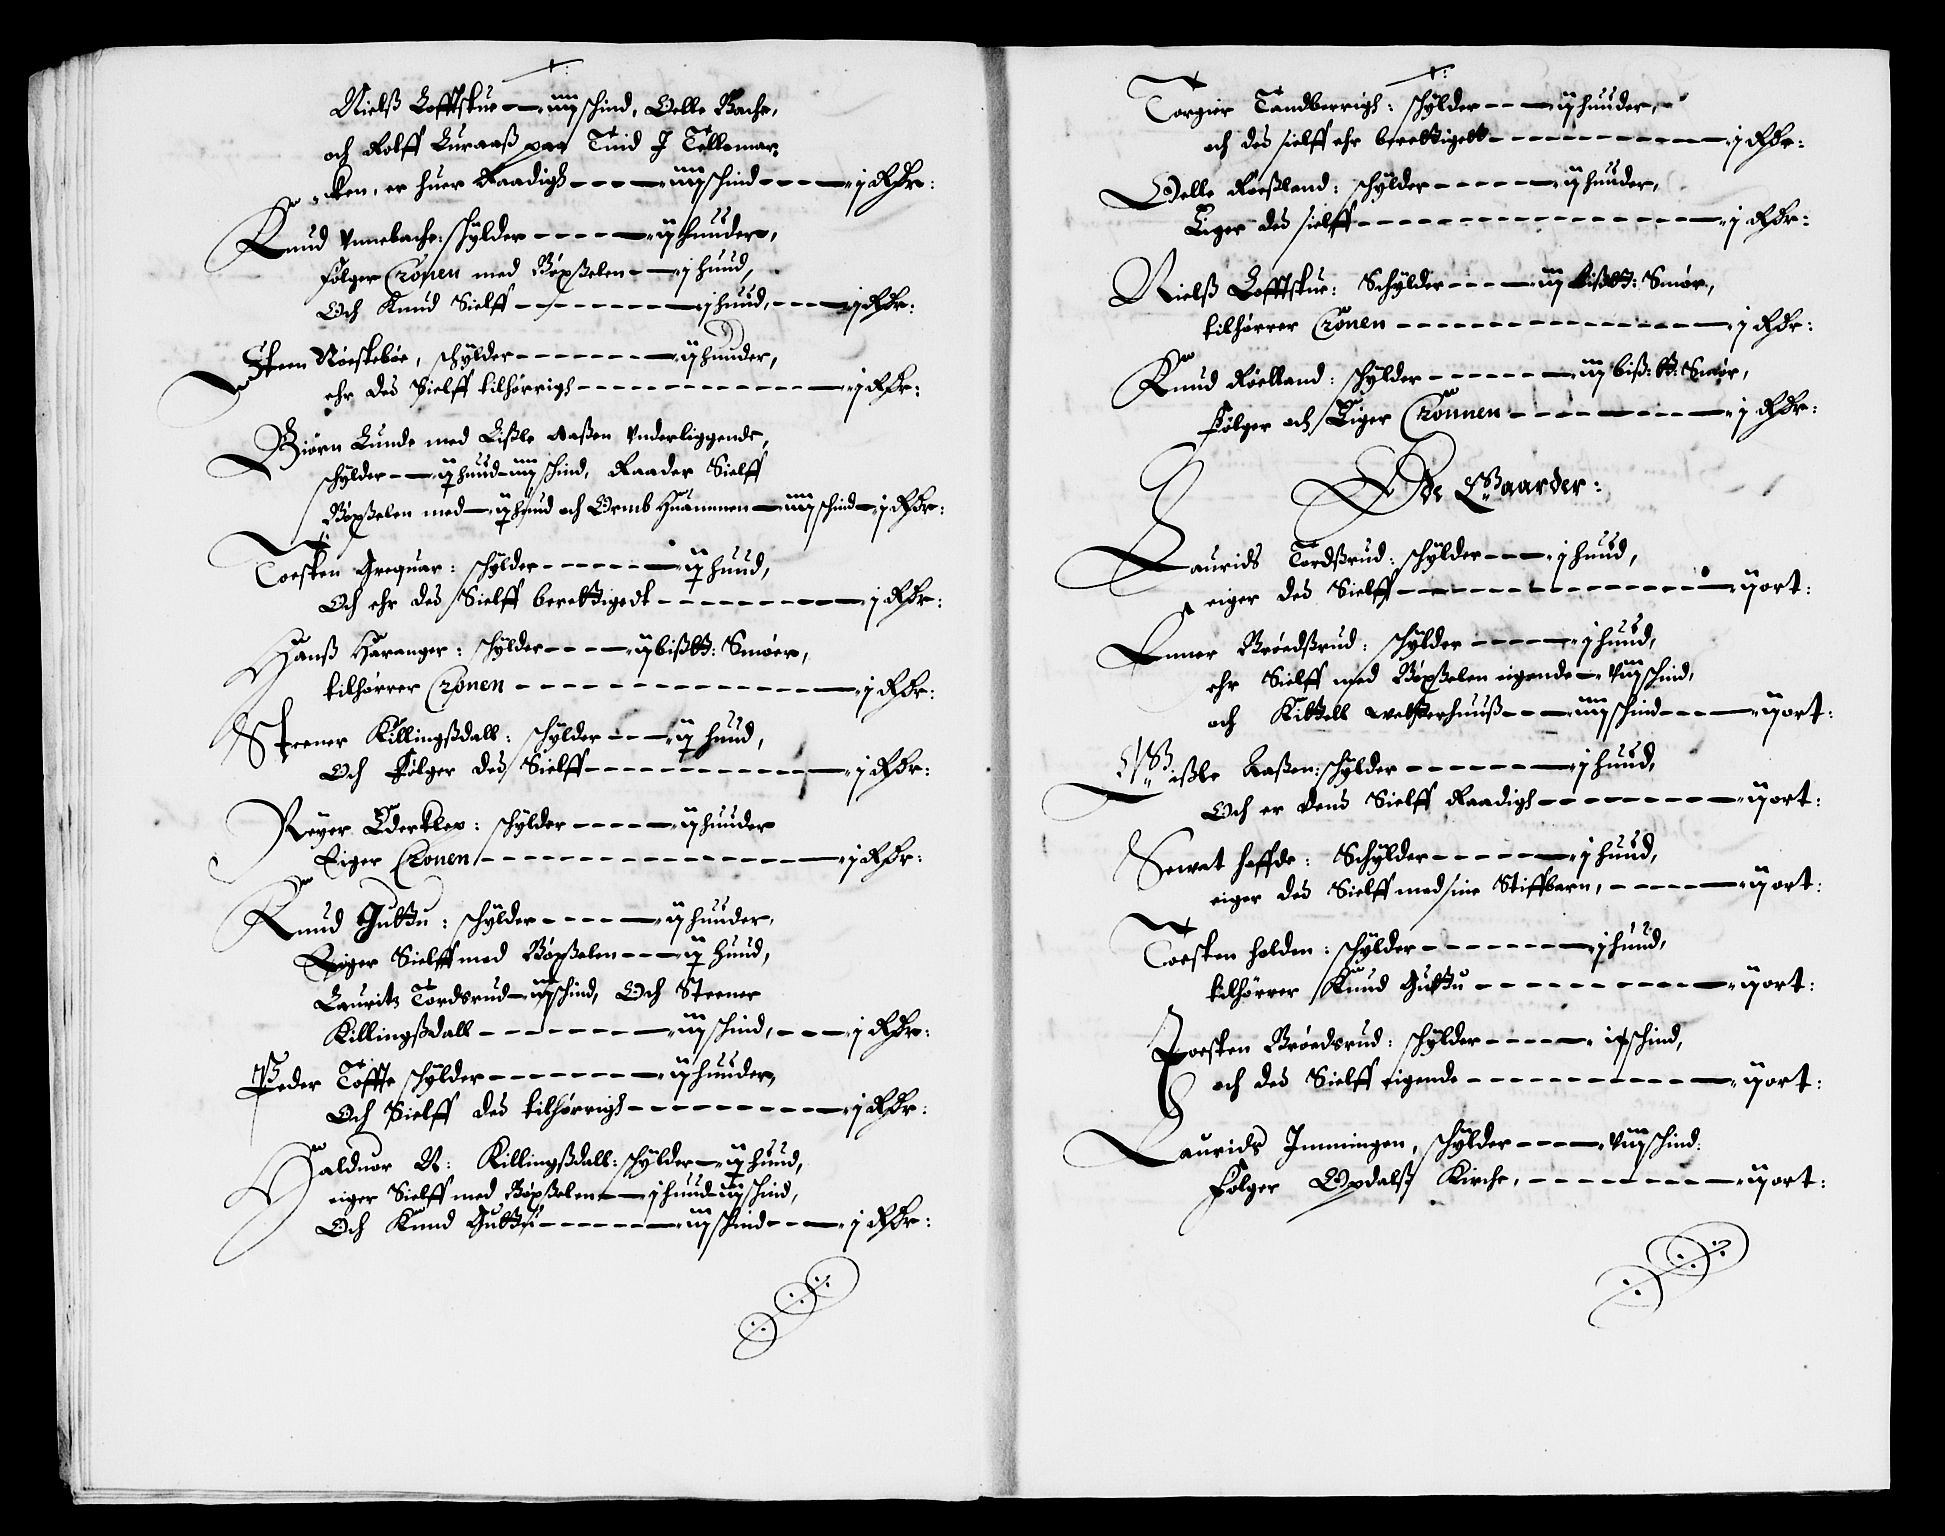 Nielß Lofftskue — iiij schind, Oelle Bache,
och Rolff Luraaß paa Tind J Tellemar,
ken, er huer Raadigh — iiij schind — j Rdr:
Knud Vnnebache: schÿlder — ij hunder,
følger Cronen med Böxselen — j hund,
Och Knud Sielff — j hund, — j Rdr:
Steen Nörstebøe, schÿlder — ij hunder,
ehr des Sielff tilhörrigh — j Rdr:
Biörn Lunde med Lißle Aaßen Vnderliggende,
schÿlder — ij hund iiij schind, Raader Sielff
Böxselen med — ij hund och Ormb Huammen — iiij schind — j Rdr:
Torsten Grequar: schÿlder — ij hund,
Och ehr des Sielff berettigedt — j Rdr:
Hanß Haranger: schÿlder — ij bißtt: Smöer,
tilhörrer Cronen — j Rdr:
Steener Killingßdall: schÿlder — ij hund,
Och følger des Sielff — j Rdr:
Reÿer Ederklep: schÿlder — ij hunder
Eiger Cronen — j Rdr:
Knud Guttu: schÿlder — ij hunder,
Eiger Sielff med Böxselen — ij hund,
Lauritz Tordsrud — iiij schind, Och Steener
Killingßdall — iij schind, — j Rdr:
Peder Töffte schÿlder — ij hunder,
Och Sielff des tilhörrigh — j Rdr:
Halduor N: Killingßdall: schÿlder — ij hund,
eiger Sielff med Böxselen — j hund iij schind,
Och Knud Guttu — iij schind — j Rdr:
Torgier Tandberrigh: schÿlder — ij hunder,
och des sielff ehr berettigett — j Rdr:
Oelle Röeßland: schÿlder — ij hunder,
Eiger des sielff — j Rdr:
Nielß Lofftskue: Schÿlder — iij bißtt: Smör,
tilhörrer Cronen — j Rdr:
Knud Röelland: schÿlder — iij biß:tt: Smör,
følger och Eiger Cronnen — j Rdr:
Øde Gaarder:
Laurids Tordßrud: schÿlder — j hund,
eiger des Sielff — ij ort:
Enner Bröedßrud: schÿlder — j hund,
ehr Sielff med Böxselen eigende — viij schind,
och Kittell Wetterhuuß — iiij schind — ij ort:
Gißle Aaßen: schÿlder — j hund,
Och er dend Sielff Raadigh — ij ort:
Sewat hoffde: Schÿlder — j hund,
eiger des Sielff med sine Stiffbarn, — ij ort:
Torsten holden: schÿlder — j hund,
tilhörrer Knud Guttu — ij ort:
Torsten Bröedsrud: schÿlder — ix schind,
och des Sielff eigende — ij ort:
Laurids Jmmingen, schÿlder — viij schind:
følger Opdalß Kirche, — ij ort: